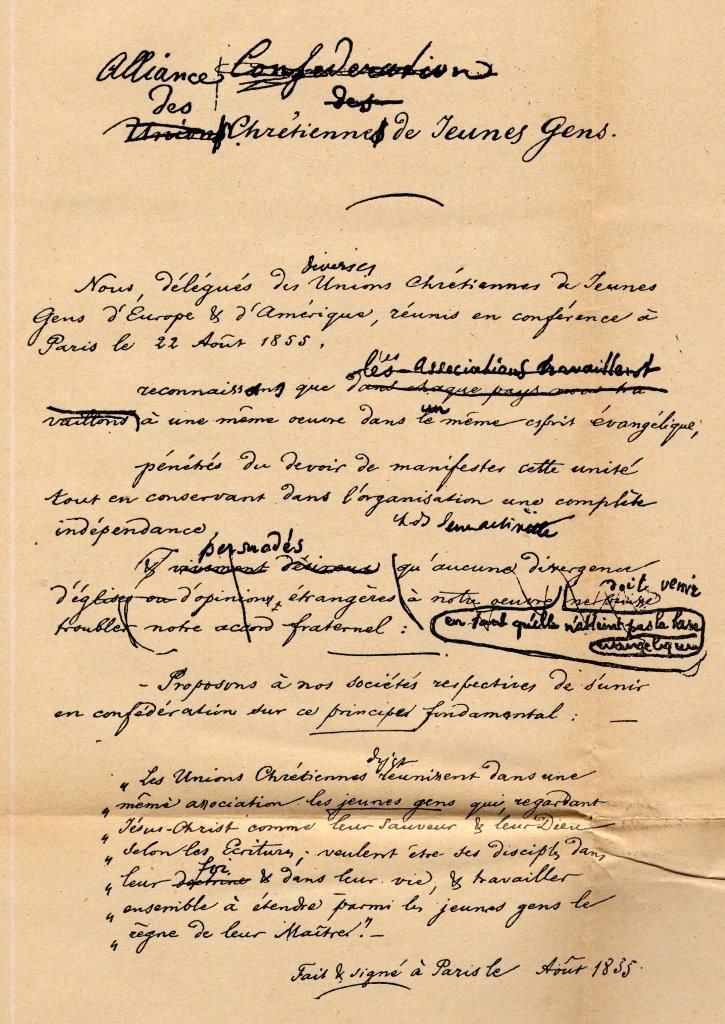 Alliance Confédération
des des
Unions Chrétiennes de Jeunes Gens.
diverses
Nous, délégués des Unions Chrétiennes de Jeunes
Gens d'Europe & d'Amérique, réunis en conférence à
Paris le 22 Août 1855,
les Associations travaillent
reconnaissant que dans chaque pays nous tra
vaillons à une même oeuvre dans le même esprit évangélique,
un
pénétrés du devoir de manifester cette unité
tout en conservant dans l'organisation une complète
indépendance
persuadés
& vivement désireux qu'aucune divergence
doit venir
d'églises ou d'opinions, étrangères à notre oeuvre, ne puisse
troubler notre accord fraternel :
en tant qu'elle n'atteint pas la base
évangélique
- Proposons à nos sociétés respectives de s'unir
en confédération sur ce principe fondamental : —
„ Les Unions Chrétiennes réunissent dans une
„ même association les jeunes gens qui, regardant
„ Jésus-Christ comme leur Sauveur & leur Dieu
„ selon les Ecritures, veulent être ses disciples dans
foi
„ leur doctrine & dans leur vie, & travailler
„ ensemble à étendre parmi les jeunes gens le
„ règne de leur Maître." —
Fait & signé à Paris le Août 1855.